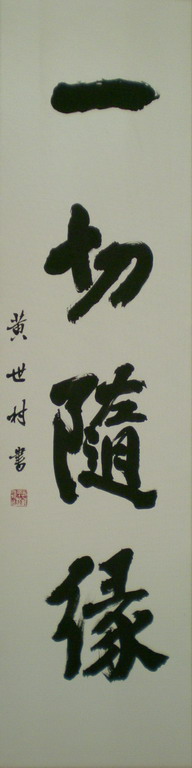 一切隨緣
黃世村書